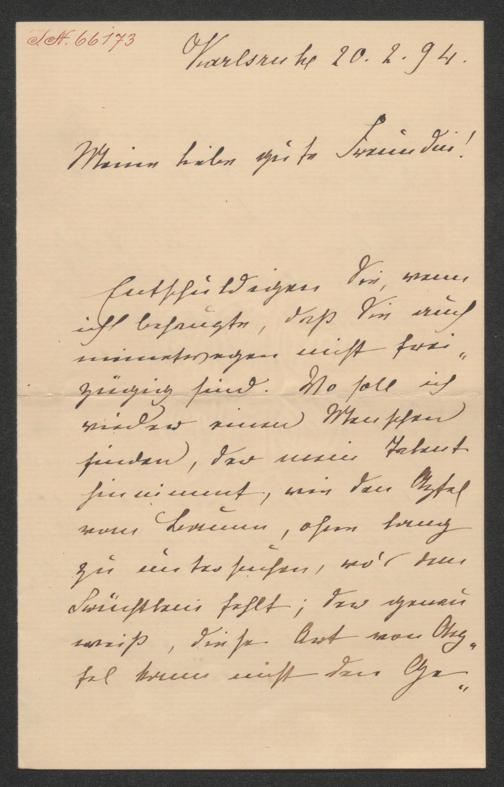 I.N. 66173
Karlsruhe 20. 2. 94.
Meine liebe gute Freundin!
Entschuldigen Sie, wenn
ich behaupte, daß Sie auch
meinetwegen nicht frei„
zügig sind. Wo soll ich
wieder einen Menschen
finden, der mein Talent
hinnimmt, wie den Apfel
vom Baum, ohne lang
zu untersuchen, wo's dem
Früchtlein fehlt; der genau
weiß, diese Art von Aep„
fel kann nicht den Ge„